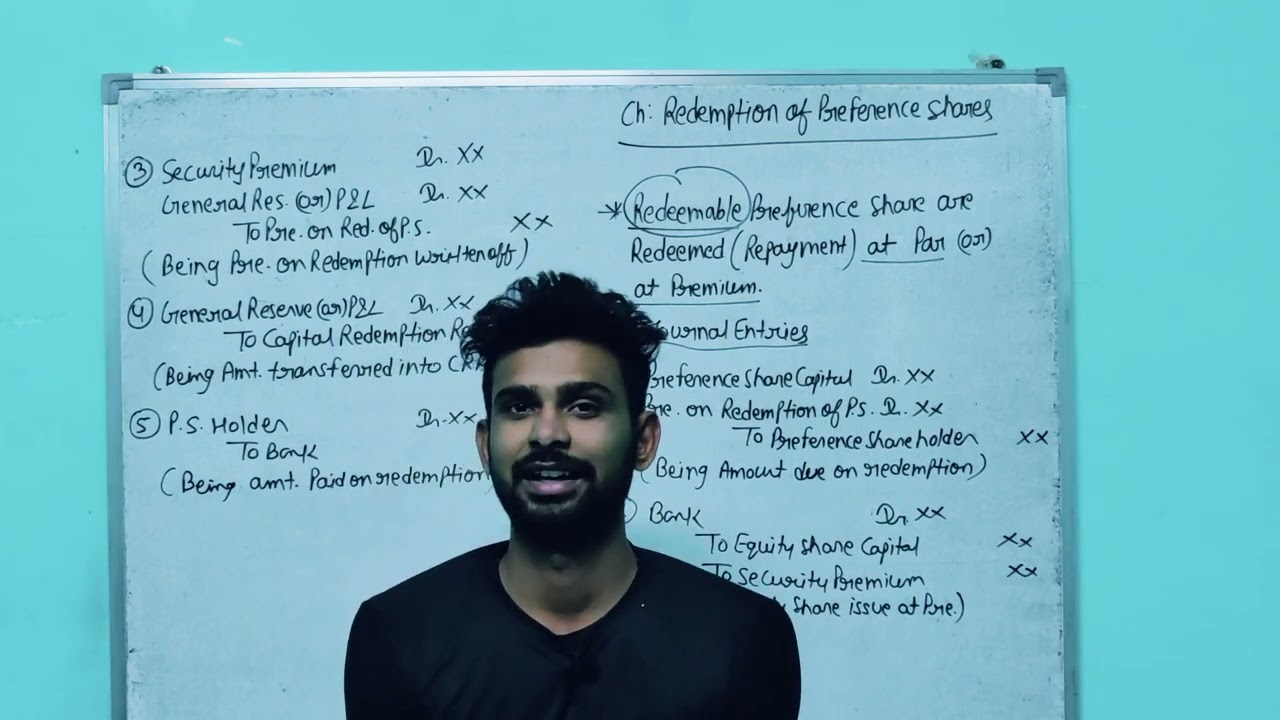 Ch: Redemption of Preference Shares
* Redeemable Preference Share are
Redeemed (Repayment) at Par (or)
at Premium.
Journal Entries
Preference Share Capital Dr. XX
Pre. on Redemption of P.S. Dr. XX
To Preference Shareholder XX
(Being Amount due on redemption)
Bank Dr. XX
To Equity Share Capital XX
To Security Premium XX
Share issue at Pre.)
③ Security Premium Dr. XX
General Res. (or) P&L Dr. XX
To Pre. on Red. of P.S. XX
(Being Pre. on Redemption written off)
④ General Reserve (or) P&L Dr. XX
To Capital Redemption
(Being Amt. transferred into CRR
⑤ P.S. Holder Dr. XX
To Bank
(Being amt. Paid on redemption